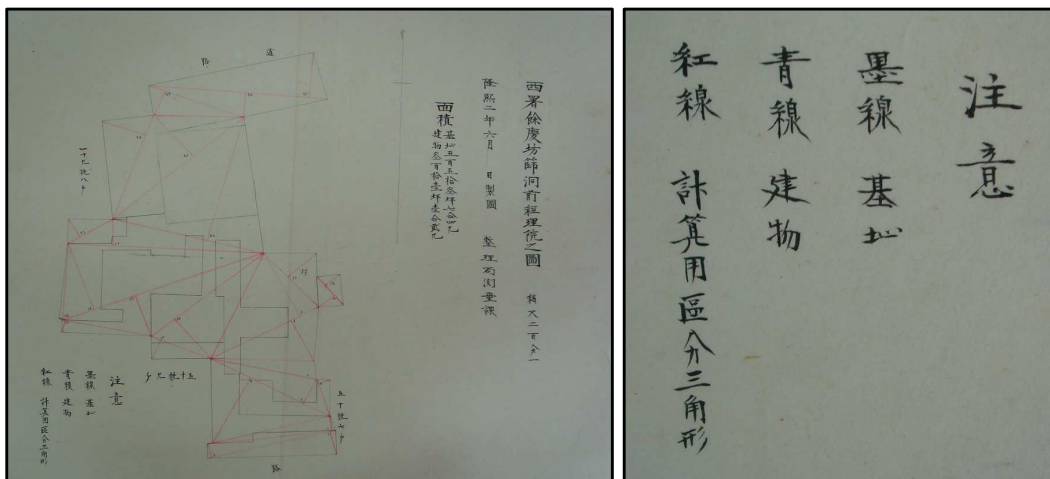 西署餘慶坊篩洞前經理院之圖 縮尺二百分一
隆熙二年六月 日製圖 整理局測量課
面積
基址五百五拾叁坪七合四勺
建物叁百拾壹坪壹合貳勺
道
路
五十號七戶
五十號九戶
路
注意
墨線 基址
青線 建物
紅線 計算用區分三角形
注意
墨線 基址
青線 建物
紅線 計算用區分三角形